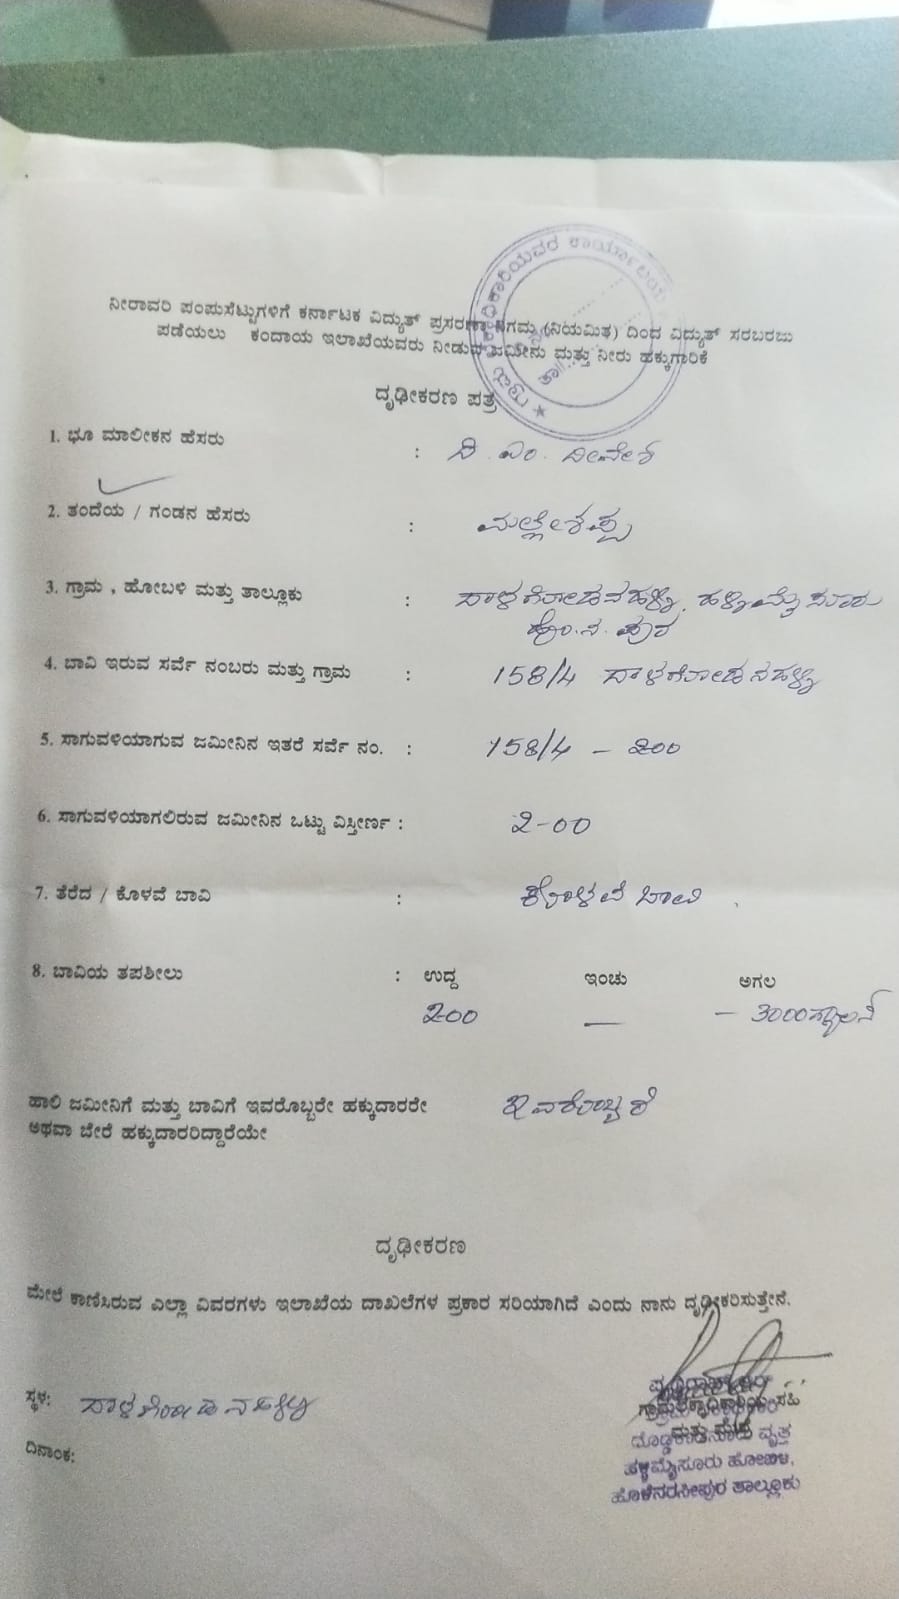 ಗ್ರಾಮ ಅಧಿಕಾರಿಯವರ ಕಾರ್ಯಾಲಯ
ತಾ||
ನೀರಾವರಿ ಪಂಪುಸೆಟ್ಟುಗಳಿಗೆ ಕರ್ನಾಟಕ ವಿದ್ಯುತ್ ಪ್ರಸರಣಾ ನಿಗಮ (ನಿಯಮಿತ) ದಿಂದ ವಿದ್ಯುತ್ ಸರಬರಜು
ಪಡೆಯಲು ಕಂದಾಯ ಇಲಾಖೆಯವರು ನೀಡುವ ಜಮೀನು ಮತ್ತು ನೀರು ಹಕ್ಕುಗಾರಿಕೆ
ದೃಢೀಕರಣ ಪತ್ರ
1. ಭೂ ಮಾಲೀಕನ ಹೆಸರು : ಡಿ. ಎಂ.
2. ತಂದೆಯ / ಗಂಡನ ಹೆಸರು : ಮಲ್ಲೇಶಪ್ಪ
3. ಗ್ರಾಮ , ಹೋಬಳಿ ಮತ್ತು ತಾಲ್ಲೂಕು : ಹಳ್ಳಿಮೈಸೂರು
ಹೊ.ನ. ಪುರ
4. ಬಾವಿ ಇರುವ ಸರ್ವೆ ನಂಬರು ಮತ್ತು ಗ್ರಾಮ : 158/4
5. ಸಾಗುವಳಿಯಾಗುವ ಜಮೀನಿನ ಇತರೆ ಸರ್ವೆ ನಂ. : 158/4 - 200
6. ಸಾಗುವಳಿಯಾಗಲಿರುವ ಜಮೀನಿನ ಒಟ್ಟು ವಿಸ್ತೀರ್ಣ : 2-00
7. ತೆರೆದ / ಕೊಳವೆ ಬಾವಿ : ಕೊಳವೆ ಬಾವಿ .
8. ಬಾವಿಯ ತಪಶೀಲು : ಉದ್ದ ಇಂಚು ಅಗಲ
200 — - 3000
ಹಾಲಿ ಜಮೀನಿಗೆ ಮತ್ತು ಬಾವಿಗೆ ಇವರೊಬ್ಬರೇ ಹಕ್ಕುದಾರರೇ ಇವರೊಬ್ಬರೆ
ಅಥವಾ ಬೇರೆ ಹಕ್ಕುದಾರರಿದ್ದಾರೆಯೇ
ದೃಢೀಕರಣ
ಮೇಲೆ ಕಾಣಿಸಿರುವ ಎಲ್ಲಾ ವಿವರಗಳು ಇಲಾಖೆಯ ದಾಖಲೆಗಳ ಪ್ರಕಾರ ಸರಿಯಾಗಿದೆ ಎಂದು ನಾನು ದೃಢೀಕರಿಸುತ್ತೇನೆ.
ಸ್ಥಳ:
ಗ್ರಾಮಲೆಕ್ಕಾಧಿಕಾರಿಯ ಸಹಿ
ಮತ್ತು ಮೊಹರು
ವೃತ್ತ
ಹಳ್ಳಿಮೈಸೂರು ಹೋಬಳಿ,
ಹೊಳೆನರಸೀಪುರ ತಾಲ್ಲೂಕು
ದಿನಾಂಕ: